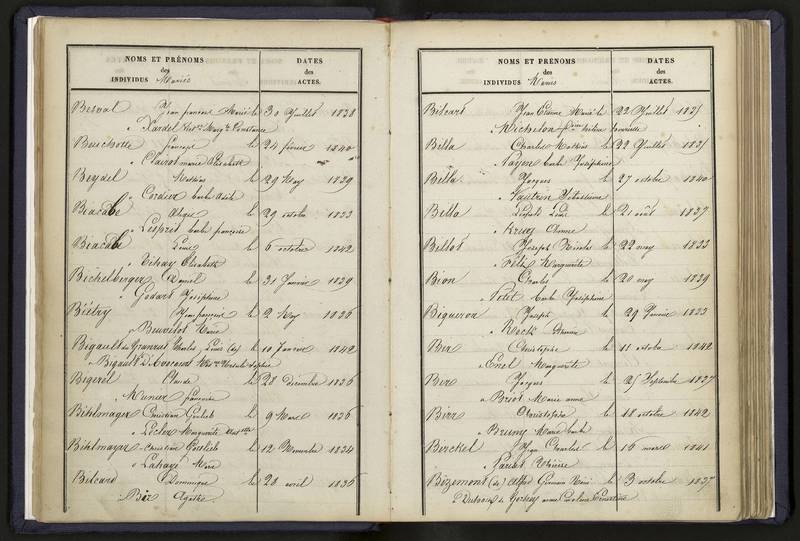 NOMS ET PRÉNOMS
des
INDIVIDUS Mariés
DATES
des
ACTES.
Besval Jean françois Marié le 30 Juillet 1838
à Lardel
Buschotte françois le 24 février 1840
à Clairot marie Elisabeth
Beydel Mathias le 29 May 1839
à Cordier barbe Adèle
Biacabe le 29 octobre 1833
à Lesprit barbe françoise
Biacabe Léon le 6 octobre 1842
à Elisabeth
Bichelberger Daniel le 31 Janvier 1839
à Godart Joséphine
Biétry Jean françois le 2 May 1836
à Beuvelot Marie
Bigault de Granrut Charles Louis (de) le 10 Janvier 1842
à Bigault D'Avocourt
Bigerel Claude le 28 décembre 1836
à Munier françoise
Bihlmager Christian Gottlieb le 9 Mars 1836
à Leclerc Marguerite
Bihlmayer Christian Gottlieb le 12 Novembre 1834
à Lahaye Marie
Bilcard Dominique le 28 avril 1836
à Bir Agathe
NOMS ET PRÉNOMS
des
INDIVIDUS Mariés
DATES
des
ACTES.
Bilcart Jean Etienne Marié le 22 Juillet 1835
à Micheton
Billa Charles Mathias le 22 Juillet 1835
à Noyen barbe Joséphine
Billa Jacques le 27 octobre 1840
à Vautrin Sébastienne
Billa Léopold Louis le 21 août 1837
à Krieg Anne
Billot Joseph Nicolas le 22 may 1833
à Félix Marguerite
Bion Charles le 20 may 1839
à Petit barbe Joséphine
Biqueron Joseph le 29 Janvier 1833
à Rock
Bir Christophe le 11 octobre 1842
à Enel Marguerite
Bire Jacques le 25 Septembre 1837
à Briot Marie anne
Birr Christophe le 18 octobre 1842
à Bruny Marie barbe
Birckel Jean Charles le 16 mars 1841
à Thérèse
Bizemont (de) Alfred Germain Marie le 3 octobre 1837
à Dubois de Gerbéry anne Caroline Ernestine